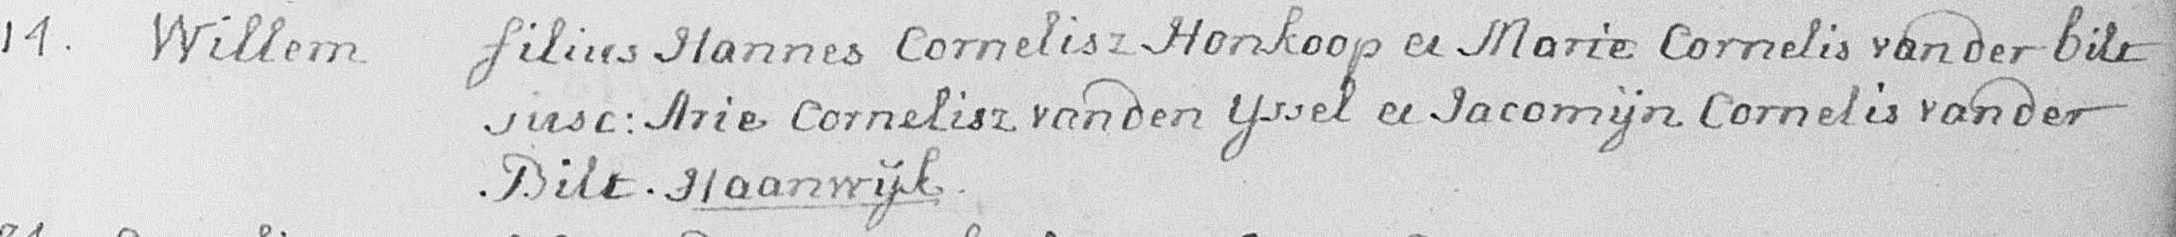 14. Willem filius Hannes Cornelisz Honkoop et Marie Cornelis vander bilt
susc: Arie Cornelisz vanden Yssel et Jacomijn Cornelis vander
Bilt. Haanwijk.